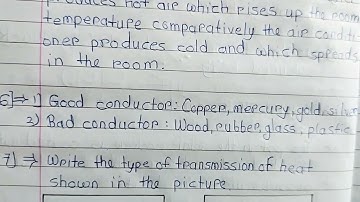 produces hot air which rises up the room
temperature comparatively the air condti
oner produces cold and which spreads
in the room.
6]⇒ 1) Good conductor: Copper, mercury, gold, silver
2) Bad conductor: Wood, rubber, glass, plastic
7] ⇒ Write the type of transmission of heat
shown in the picture